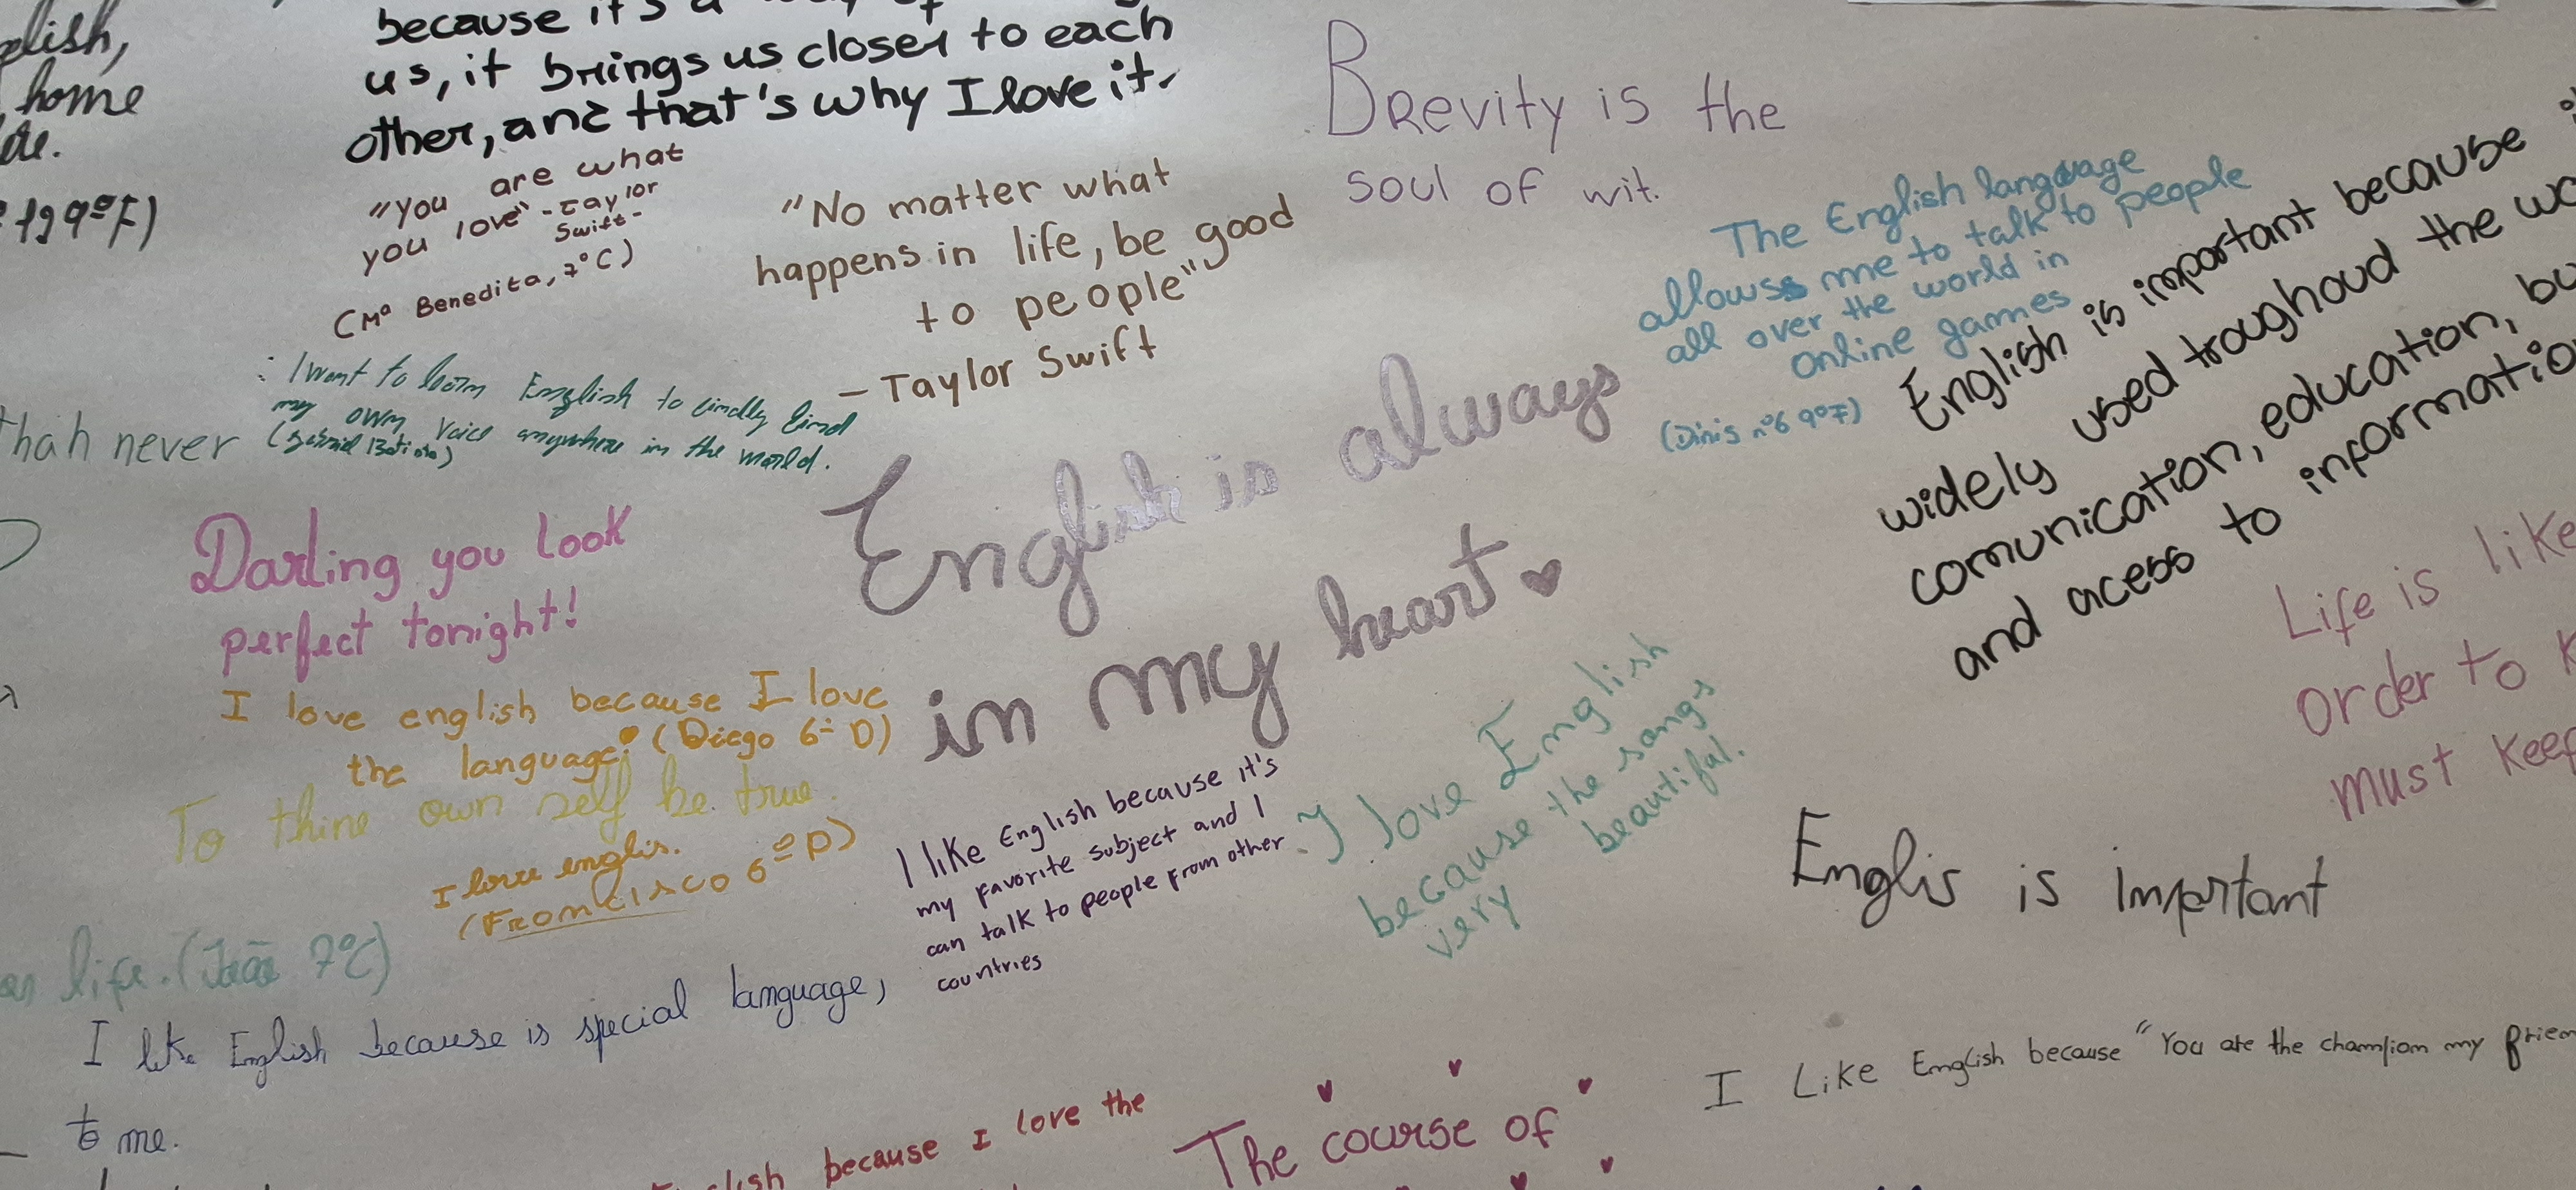 because it's a
us, it brings us closer to each
other, and that's why I love it.
home
199ºF)
"you are what
you love" - Taylor
Swift -
(Mª Benedita, 7ºC)
"No matter what
happens in life, be good
to people"
- Taylor Swift
Brevity is the
soul of wit.
The English language
allowss me to talk to people
all over the world in
online games
(Dinis nº6 9ºF)
English is important because
widely used troughoud the
comunication, education,
and acess to
I want to learn English to
my own voice anywhere in the
than never
English is always
in my heart
Darling you look
perfect tonight!
I love english because I love
the language (Diego 6º D)
To thine own self be true.
I love englis.
(Francisco 6º D)
I like English because it's
my favorite subject and I
can talk to people from other
countries
I love English
because the songs
very beautiful.
Life is like
order to
must keep
Englis is important
life. (João 7ºC)
I like English because is special language,
to me.
because I love the
The course of
I Like English because "You are the champion my